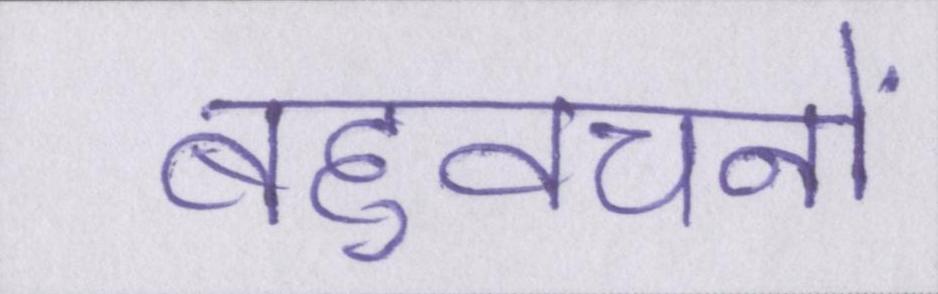 बहुवचनों